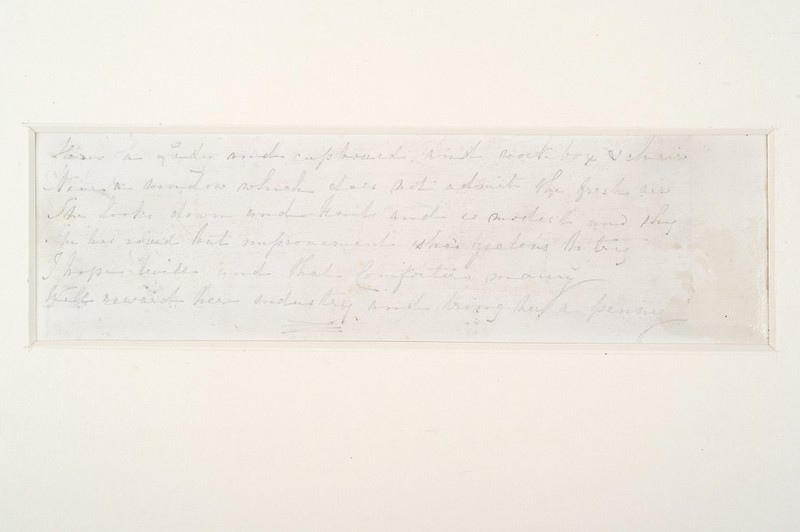 a and cupboard and work box & chair
Near a window which does not admit the fresh air
She looks down and knits and is modest and shy
She has need but improvement she's zealous to try
I hope besides and that Comforters many
Will reward her industry and bring her a penny